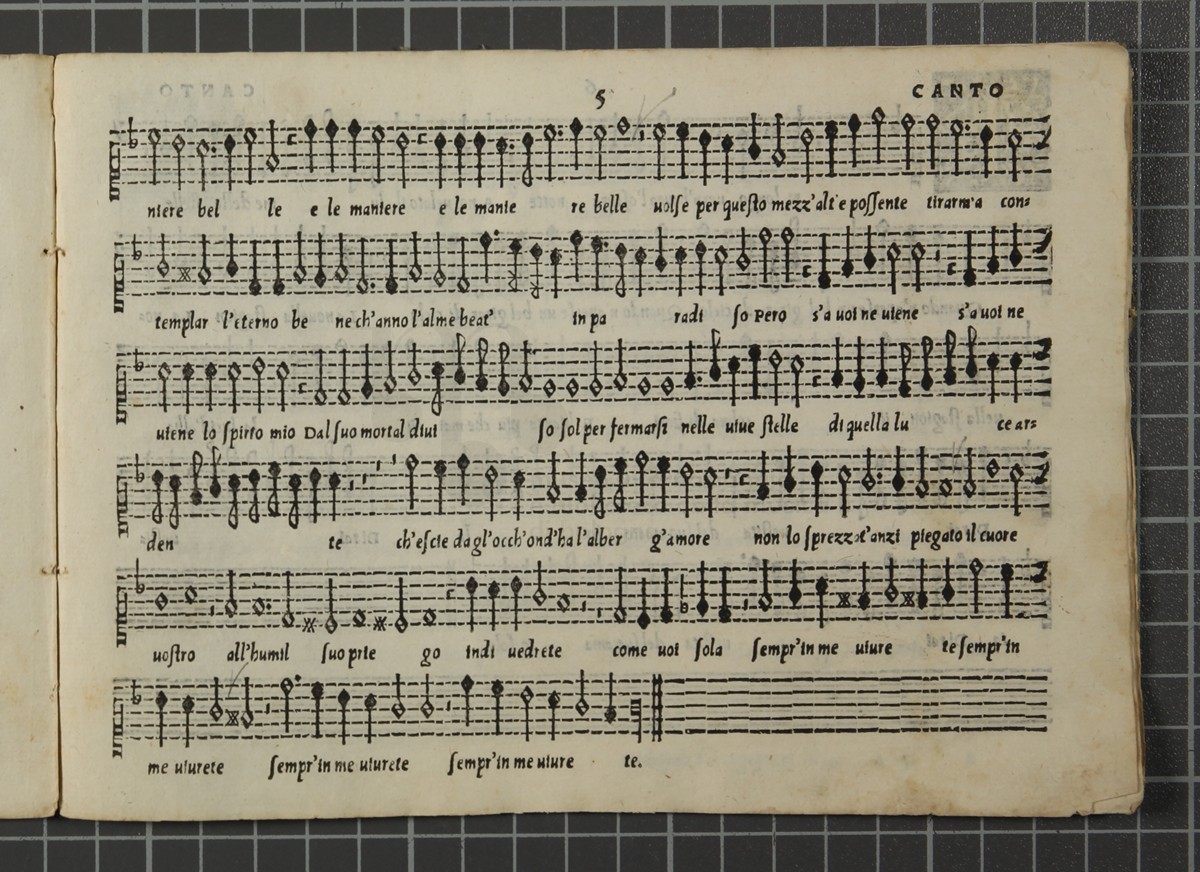 5 CANTO
niere bel le e le maniere e le manie re belle uolse per questo mezz'alt'e possente tirarm'a con=
templar l'eterno be ne ch'anno l'alme beat' in pa radi so Pero s'a uoi ne uiene s'a uoi ne
uiene lo spirto mio Dal suo mortal diui so sol per fermarsi nelle uiue stelle di quella lu ce ar=
den te ch'escie da gl'occh'ond'ha l'alber g'amore non lo sprezzat'anzi piegato il cuore
uostro all'humil suo prie go indi uedrete come uoi sola sempr'in me uiure te sempr'in
me uiurete sempr'in me uiurete sempr'in me uiure te.